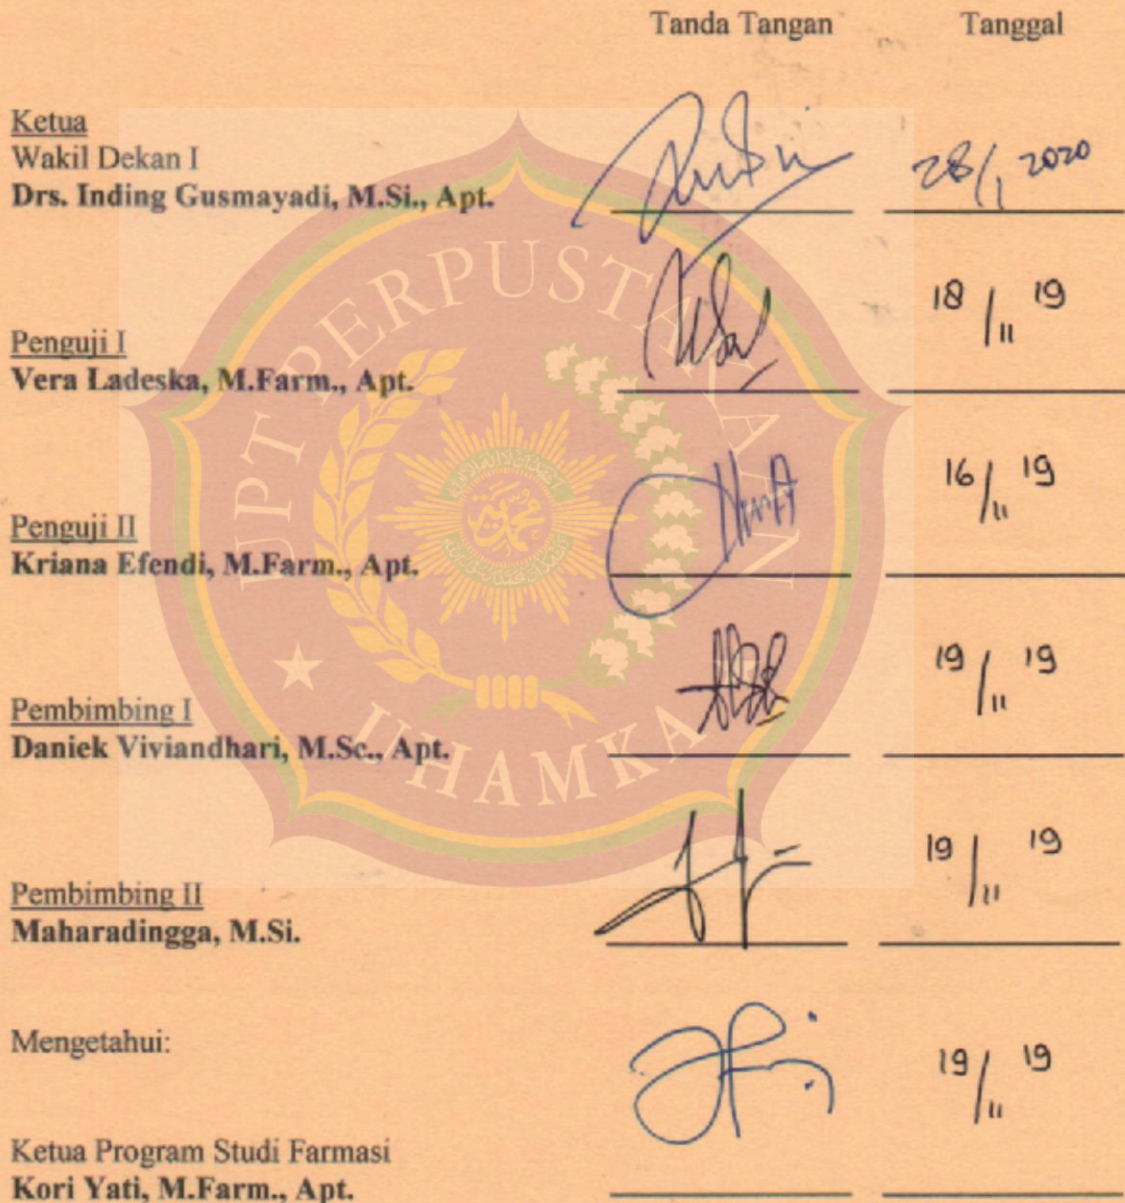 Tanda Tangan Tanggal
Ketua
Wakil Dekan I
Drs. Inding Gusmayadi, M.Si., Apt. 28/1 2020
Penguji I 18/11 19
Vera Ladeska, M.Farm., Apt.
Penguji II 16/11 19
Kriana Efendi, M.Farm., Apt.
Pembimbing I 19/11 19
Daniek Viviandhari, M.Sc., Apt.
Pembimbing II 19/11 19
Maharadingga, M.Si.
Mengetahui: 19/11 19
Ketua Program Studi Farmasi
Kori Yati, M.Farm., Apt.
UPT PERPUSTAKAAN
UHAMKA